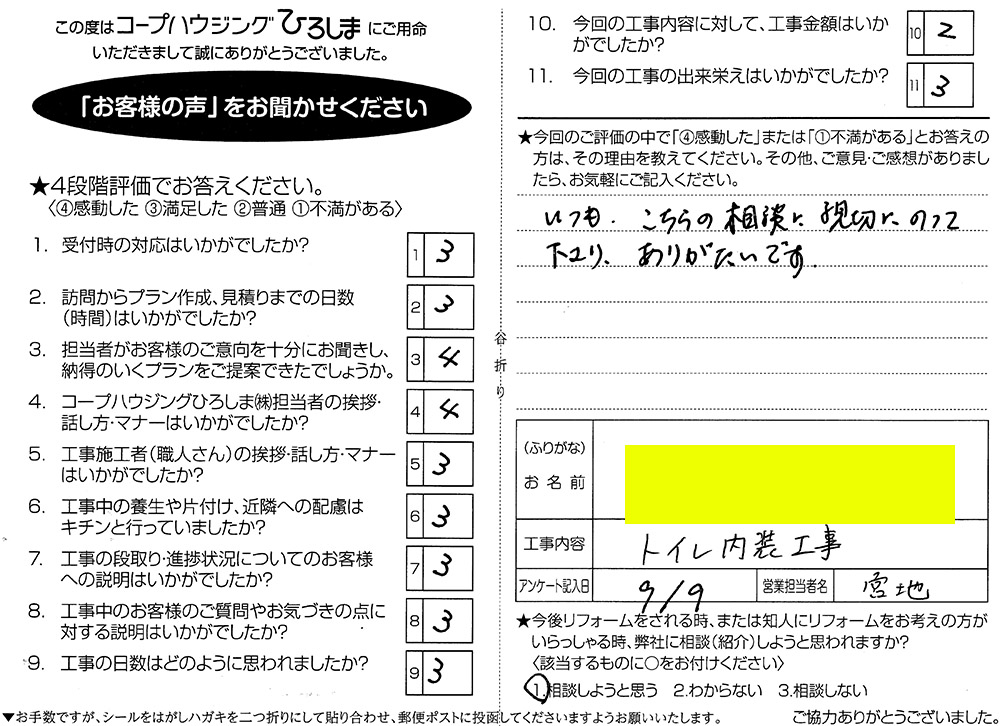 この度はコープハウジングひろしまにご用命
いただきまして誠にありがとうございました。
「お客様の声」をお聞かせください
★4段階評価でお答えください。
〈④感動した ③満足した ②普通 ①不満がある〉
1. 受付時の対応はいかがでしたか?
1 3
2. 訪問からプラン作成、見積りまでの日数
(時間)はいかがでしたか?
2 3
3. 担当者がお客様のご意向を十分にお聞きし、
納得のいくプランをご提案できたでしょうか。
3 4
4. コープハウジングひろしま㈱担当者の挨拶・
話し方・マナーはいかがでしたか?
4 4
5. 工事施工者(職人さん)の挨拶・話し方・マナー
はいかがでしたか?
5 3
6. 工事中の養生や片付け、近隣への配慮は
キチンと行っていましたか?
6 3
7. 工事の段取り・進捗状況についてのお客様
への説明はいかがでしたか?
7 3
8. 工事中のお客様のご質問やお気づきの点に
対する説明はいかがでしたか?
8 3
9. 工事の日数はどのように思われましたか?
9 3
▼お手数ですが、シールをはがしハガキを二つ折りにして貼り合わせ、郵便ポストに投函してくださいますようお願いいたします。
谷折り
10. 今回の工事内容に対して、工事金額はいか
がでしたか?
10 2
11. 今回の工事の出来栄えはいかがでしたか?
11 3
★今回のご評価の中で「④感動した」または「①不満がある」とお答えの
方は、その理由を教えてください。その他、ご意見・ご感想がありまし
たら、お気軽にご記入ください。
いつも、こちらの相談に親切にのって
下さり、ありがたいです。
(ふりがな)
お名前
工事内容 トイレ内装工事
アンケート記入日 9/9 営業担当者名 宮地
★今後リフォームをされる時、または知人にリフォームをお考えの方が
いらっしゃる時、弊社に相談(紹介)しようと思われますか?
〈該当するものに○をお付けください〉
1.相談しようと思う 2.わからない 3.相談しない
ご協力ありがとうございました。